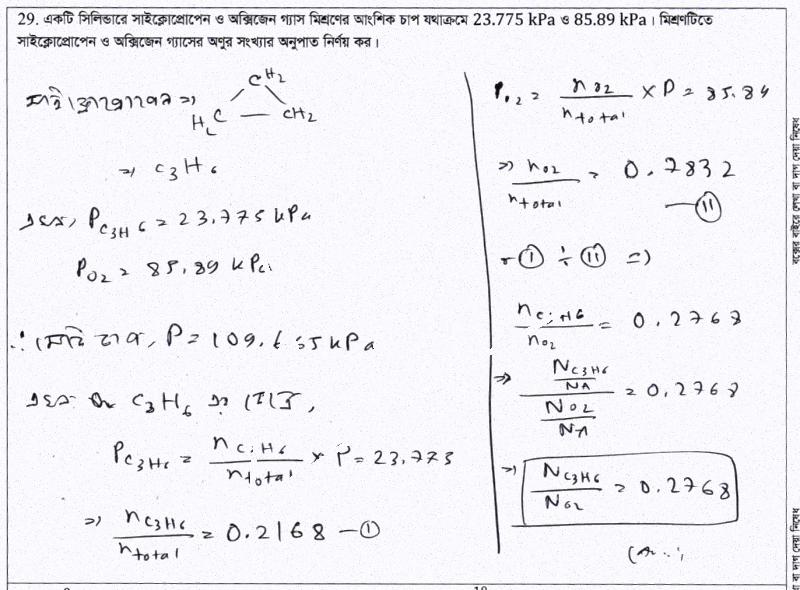 29. একটি সিলিন্ডারে সাইক্লোপ্রোপেন ও অক্সিজেন গ্যাস মিশ্রণের আংশিক চাপ যথাক্রমে 23.775 kPa ও 85.89 kPa। মিশ্রণটিতে
সাইক্লোপ্রোপেন ও অক্সিজেন গ্যাসের অণুর সংখ্যার অনুপাত নির্ণয় কর।
সাইক্লোপ্রোপেন ⇒
CH2
H2C — CH2
⇒ C3H6
এখন, P_C3H6 = 23.775 kPa
P_O2 = 85.89 kPa
∴ মোট চাপ, P = 109.665 kPa
এখন C3H6 এর ক্ষেত্রে,
P_C3H6 = n_C3H6 / n_total × P = 23.775
⇒ n_C3H6 / n_total = 0.2168 — (i)
P_O2 = n_O2 / n_total × P = 85.89
⇒ n_O2 / n_total = 0.7832
— (ii)
(i) ÷ (ii) ⇒
n_C3H6 / n_O2 = 0.2768
⇒ (N_C3H6 / NA) / (N_O2 / NA) = 0.2768
⇒ N_C3H6 / N_O2 = 0.2768
(Ans.)